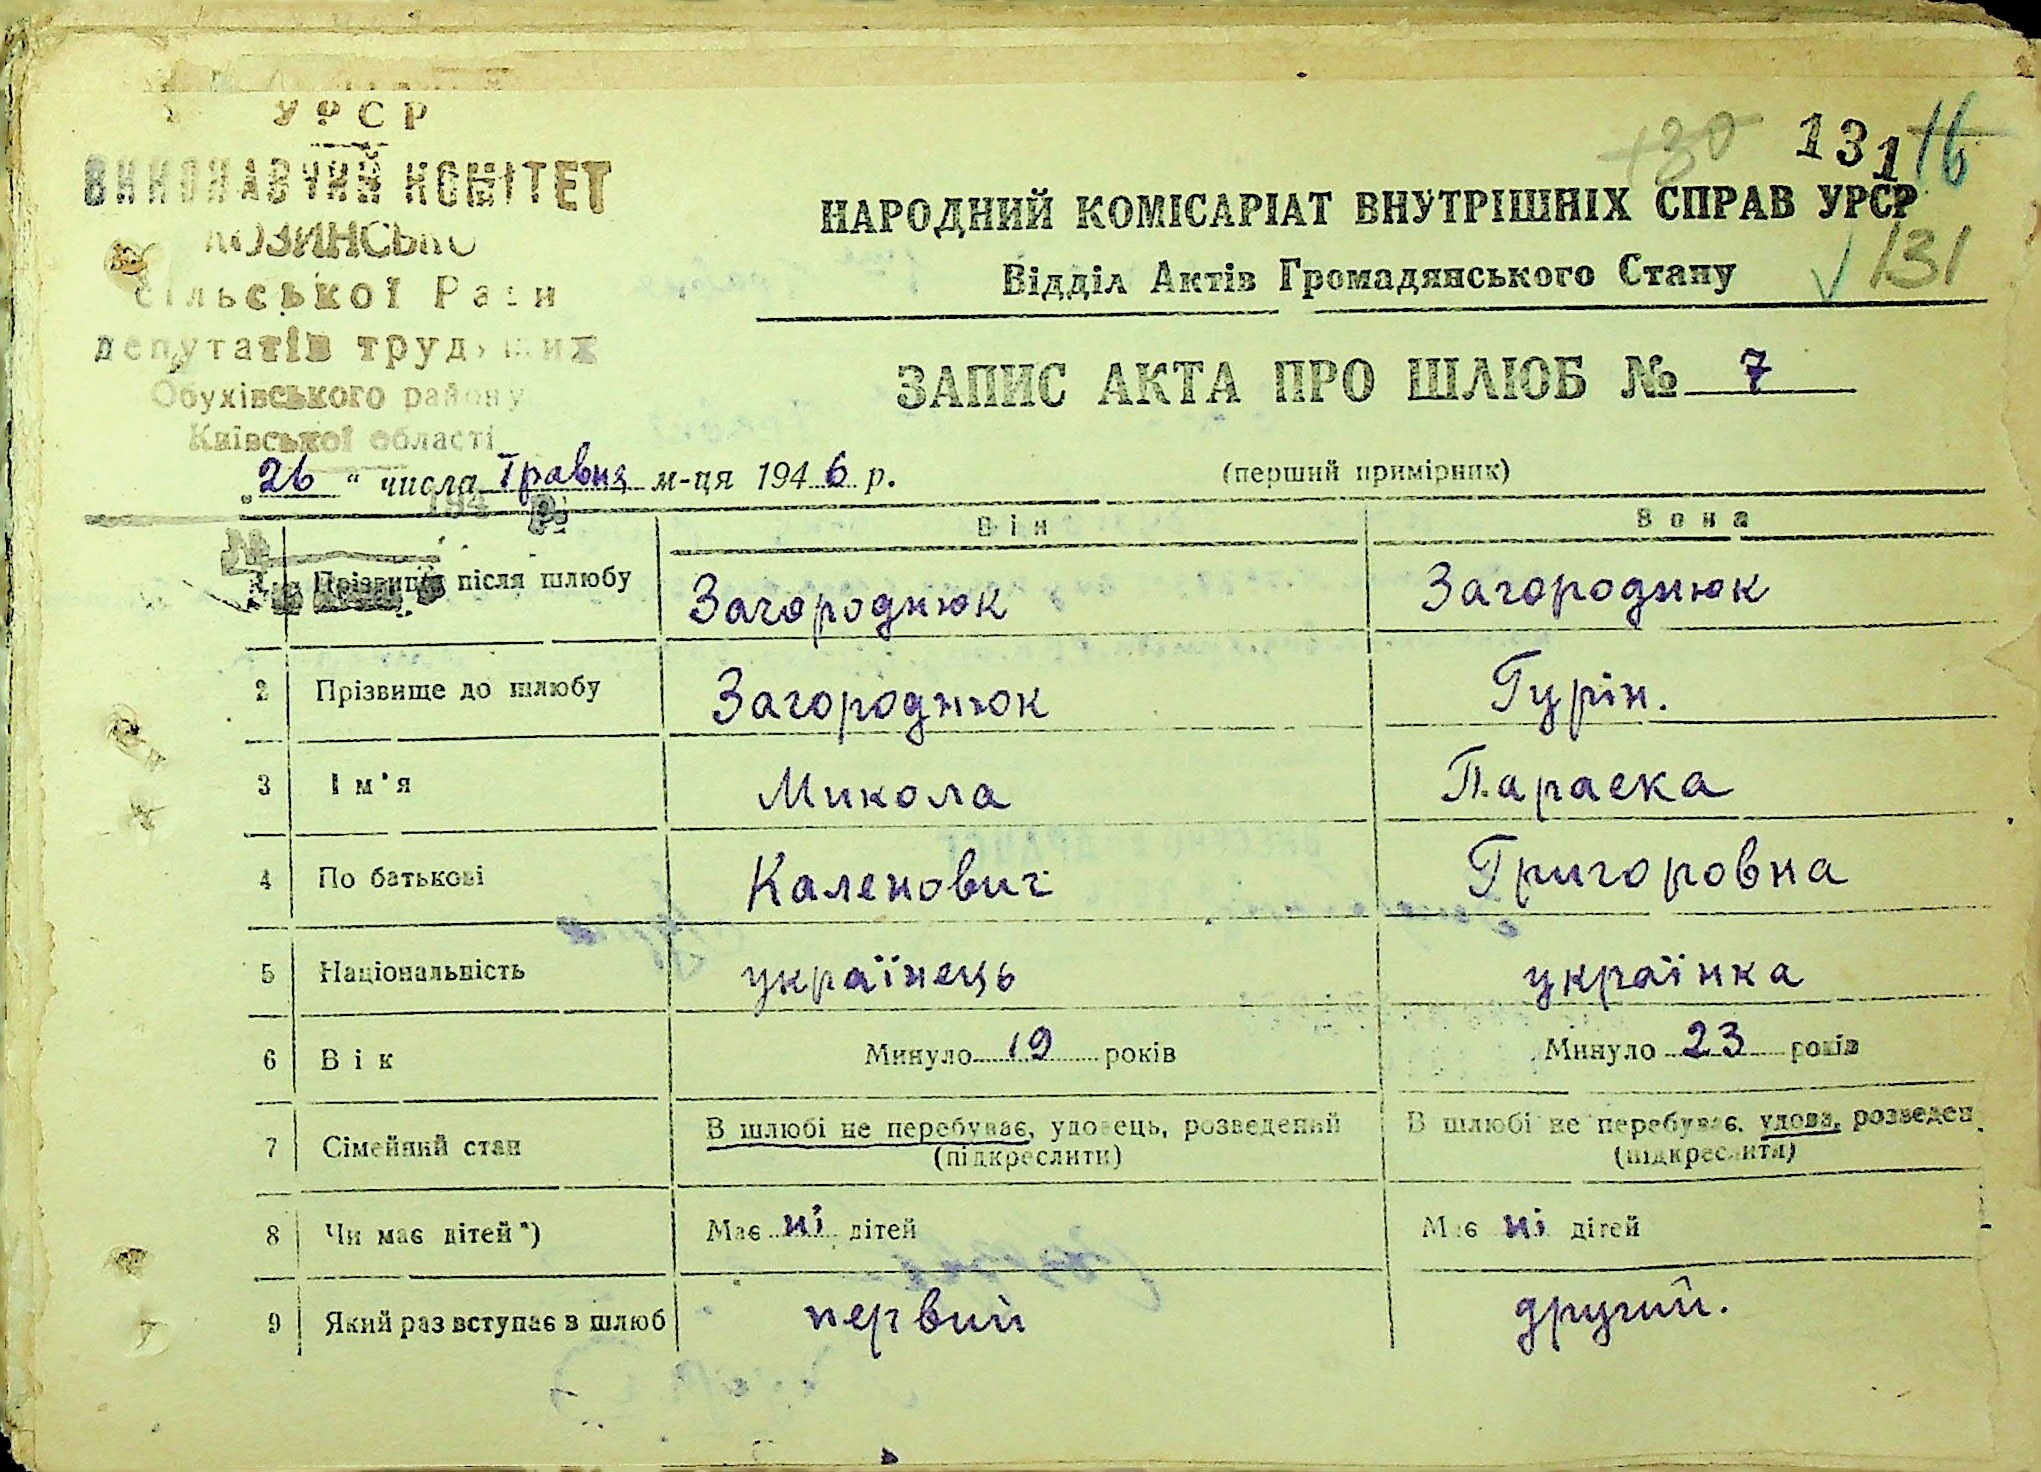 УРСР
ВИКОНАВЧИЙ КОМІТЕТ
КОЗИНСЬКО
сільської Ради
депутатів трудящих
Обухівського району
Київської області
194 р.
130 131 16
НАРОДНИЙ КОМІСАРІАТ ВНУТРІШНІХ СПРАВ УРСР
Відділ Актів Громадянського Стану 131
ЗАПИС АКТА ПРО ШЛЮБ № 7
„26 “ числа Травня м-ця 1946 р. (перший примірник)
Він Вона
Прізвище після шлюбу Загороднюк Загороднюк
2 Прізвище до шлюбу Загороднюк Гурін.
3 Ім'я Микола Параска
4 По батькові Каленович Григоровна
5 Національність українець українка
6 Вік Минуло 19 років Минуло 23 років
7 Сімейний стан В шлюбі не перебуває, удовець, розведений В шлюбі не перебуває, удова, розведен
(підкреслити) (підкреслити)
8 Чи має дітей*) Має ні дітей Має ні дітей
9 Який раз вступає в шлюб первий другий.